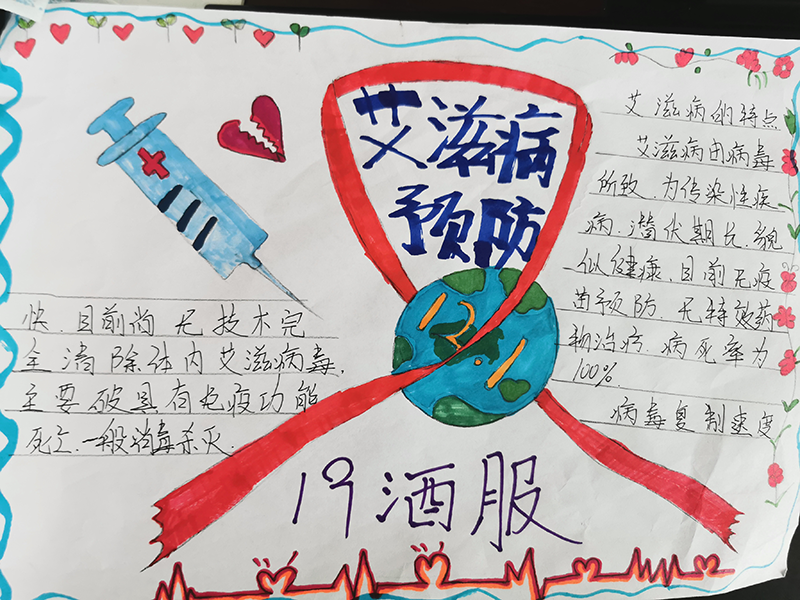 艾滋病
预防
12.1
艾滋病的特点
艾滋病由病毒
所致.为传染性疾
病.潜伏期长.貌
似健康.目前无疫
苗预防.无特效药
物治疗.病死率为
100%.
病毒复制速度
快.目前尚无技术完
全清除体内艾滋病毒,
主要破具有免疫功能
死亡.一般消毒杀灭.
19酒服